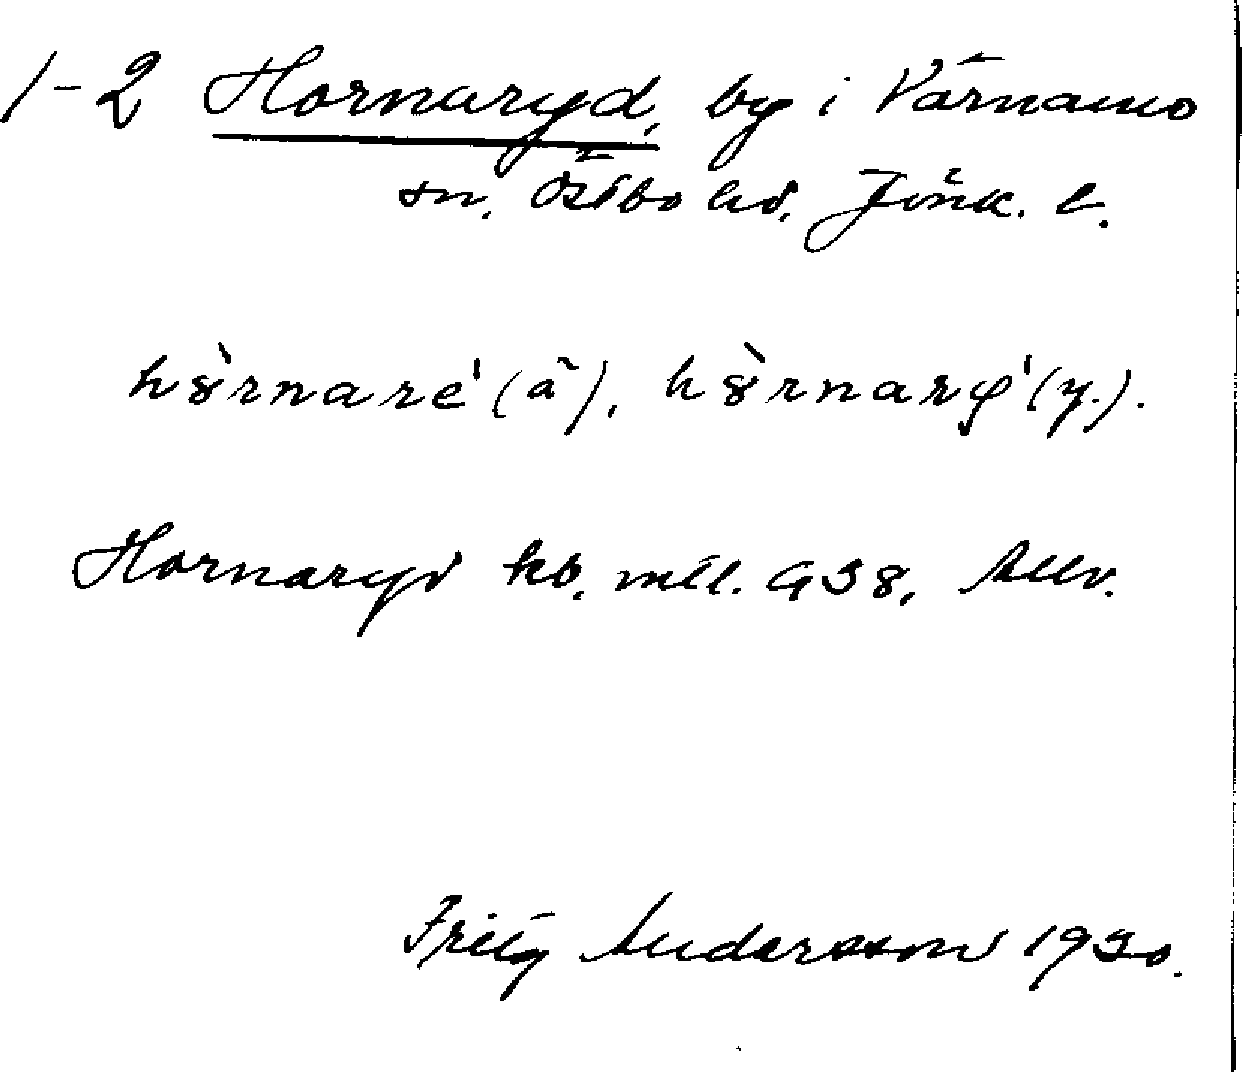 1-2 Hornaryd, by i Värnamo
sn. Östbo hd. Jönk. l.
hȣ̀rnare̍ (ä), hȣ̀rnarẏ (y.).
Hornaryd kb. mtl. G38,
Fritz Andersson 1930.